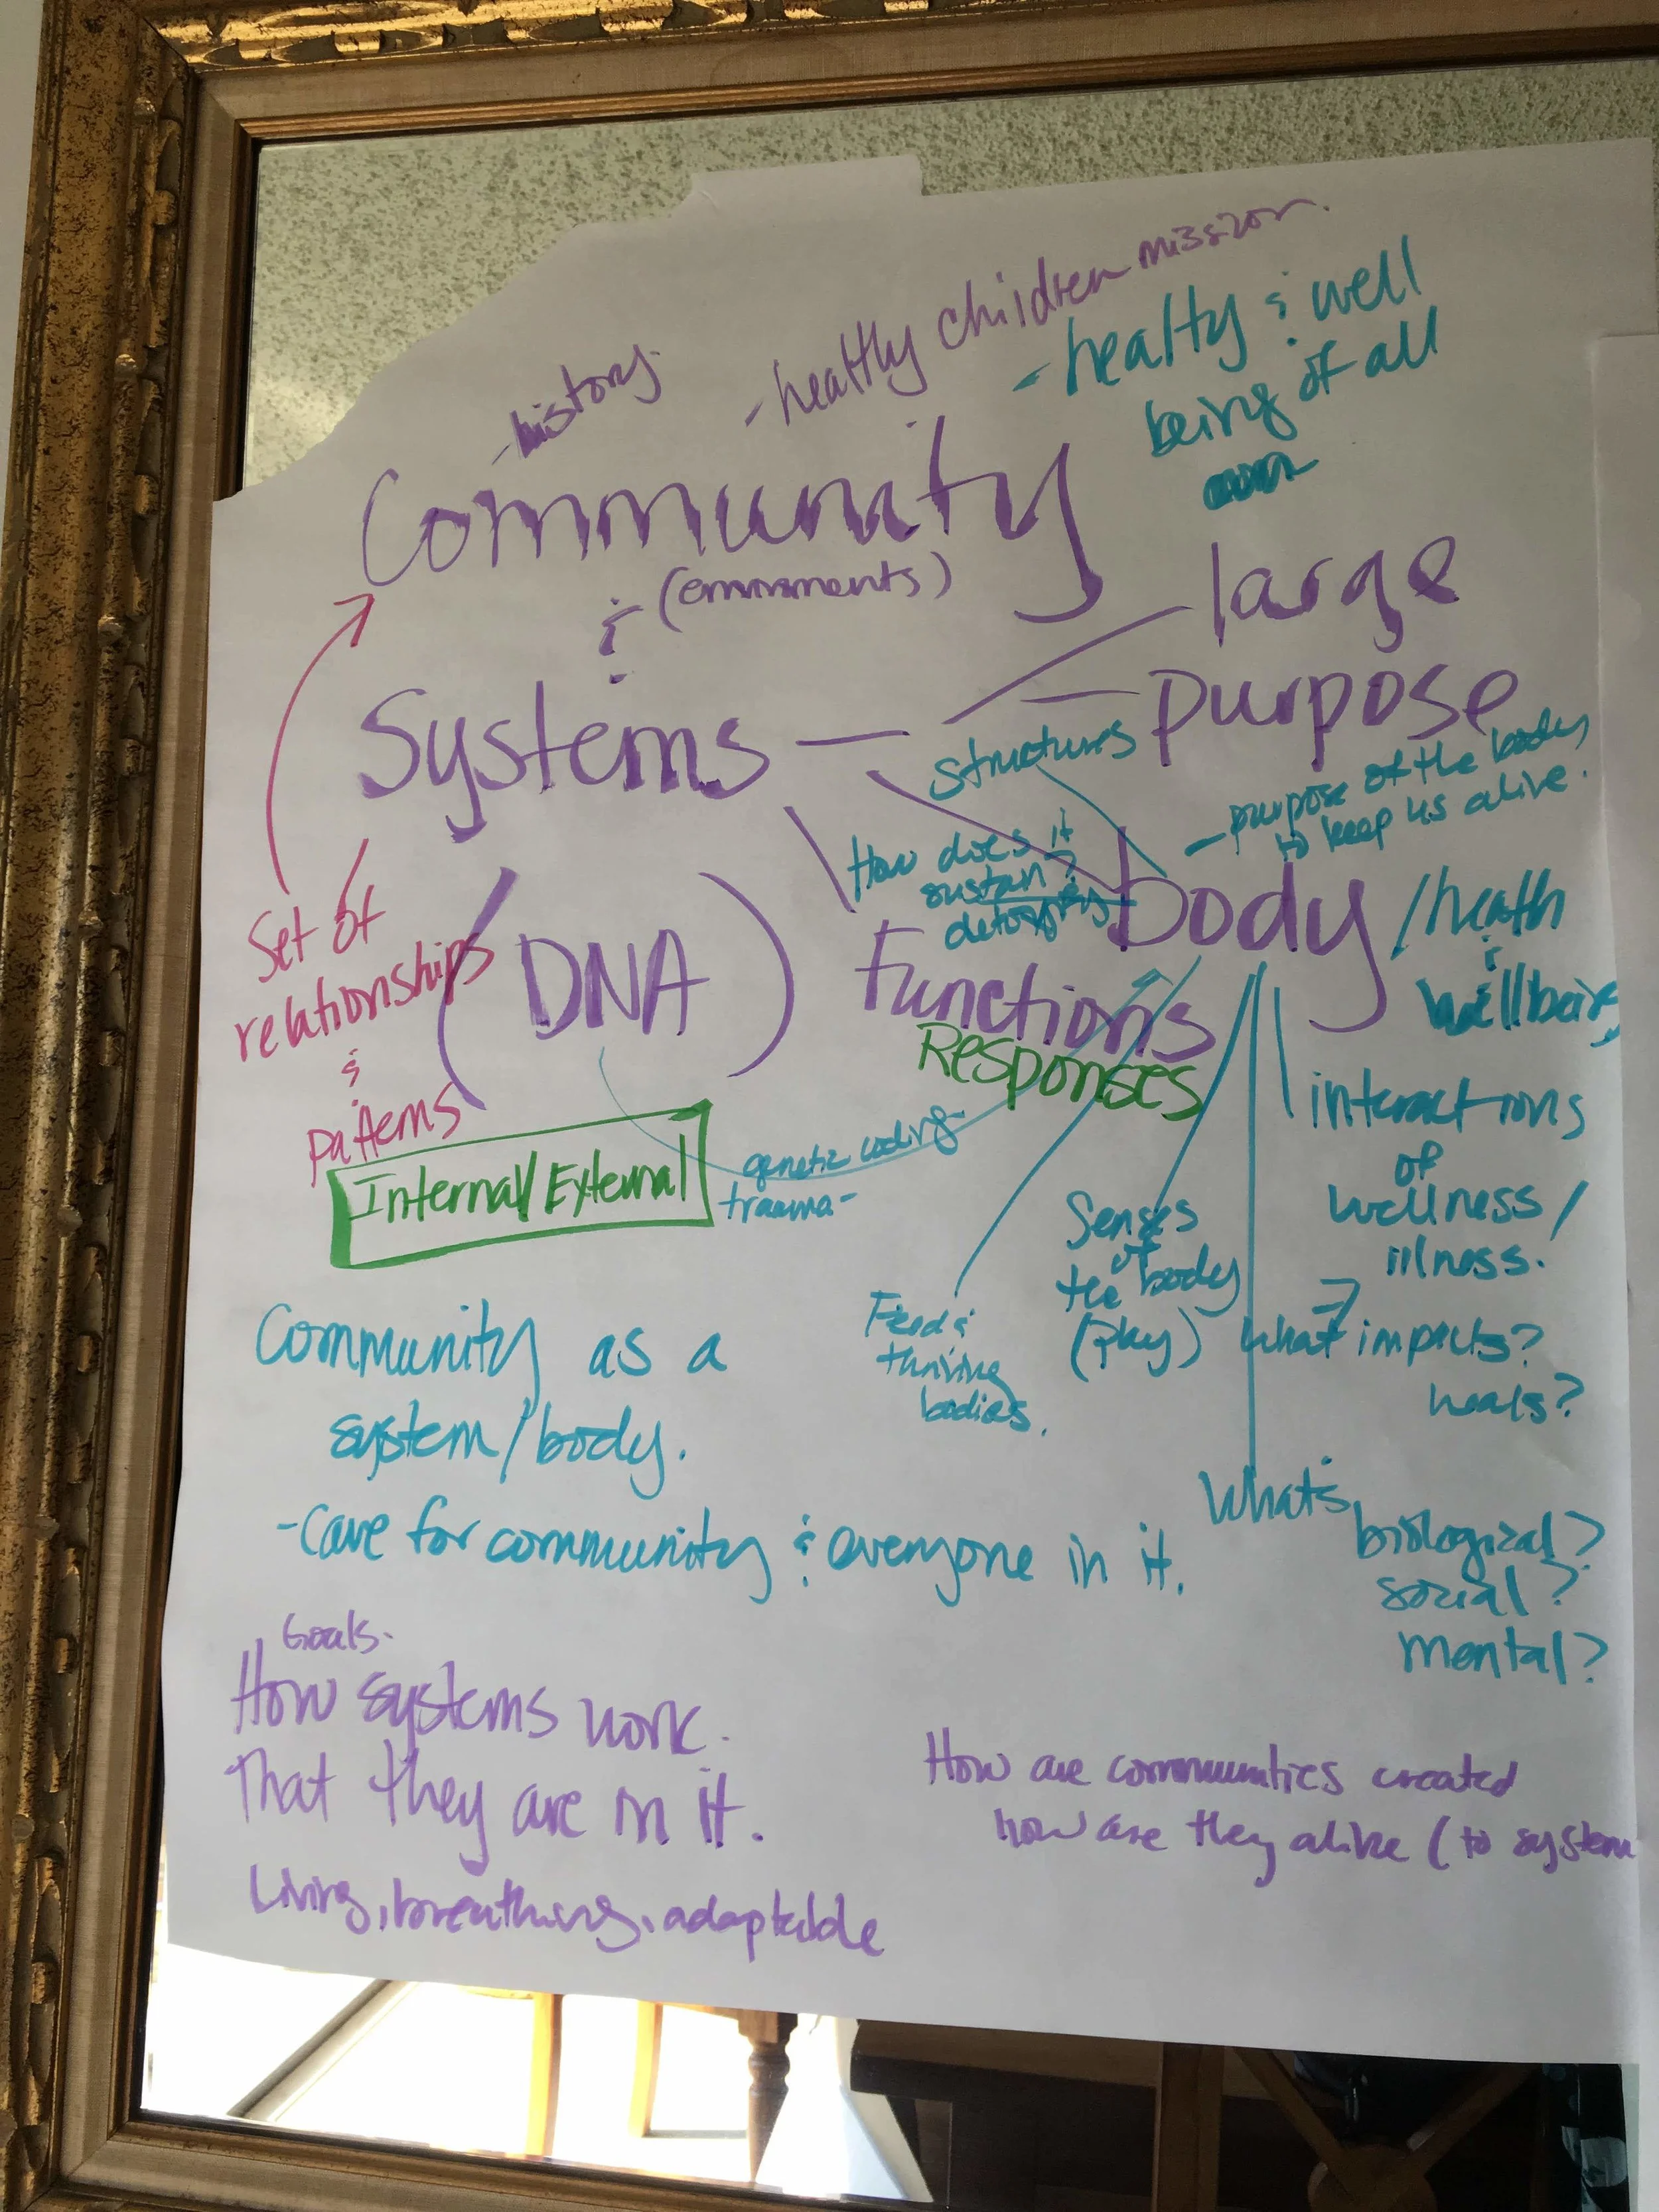 - history
- healthy children mission.
- healty & well
being of all
Community
(environments)
&
Systems
large
purpose
structures
- purpose of the body
to keep us alive.
How does it
sustain?
body
/health
&
wellbeing
Set of
relationships
&
patterns
(DNA)
Functions
Responses
Internal/External
genetic coding-
trauma-
interactions
of
wellness/
illness.
Senses
of
the body
(play)
Feed &
thriving
bodies.
What impacts?
heals?
What's
biological?
social?
mental?
Community as a
system/body.
-Care for community & everyone in it.
Goals.
How systems work.
That they are in it.
Living, breathing, adaptable
How are communities created
how are they alike (to system